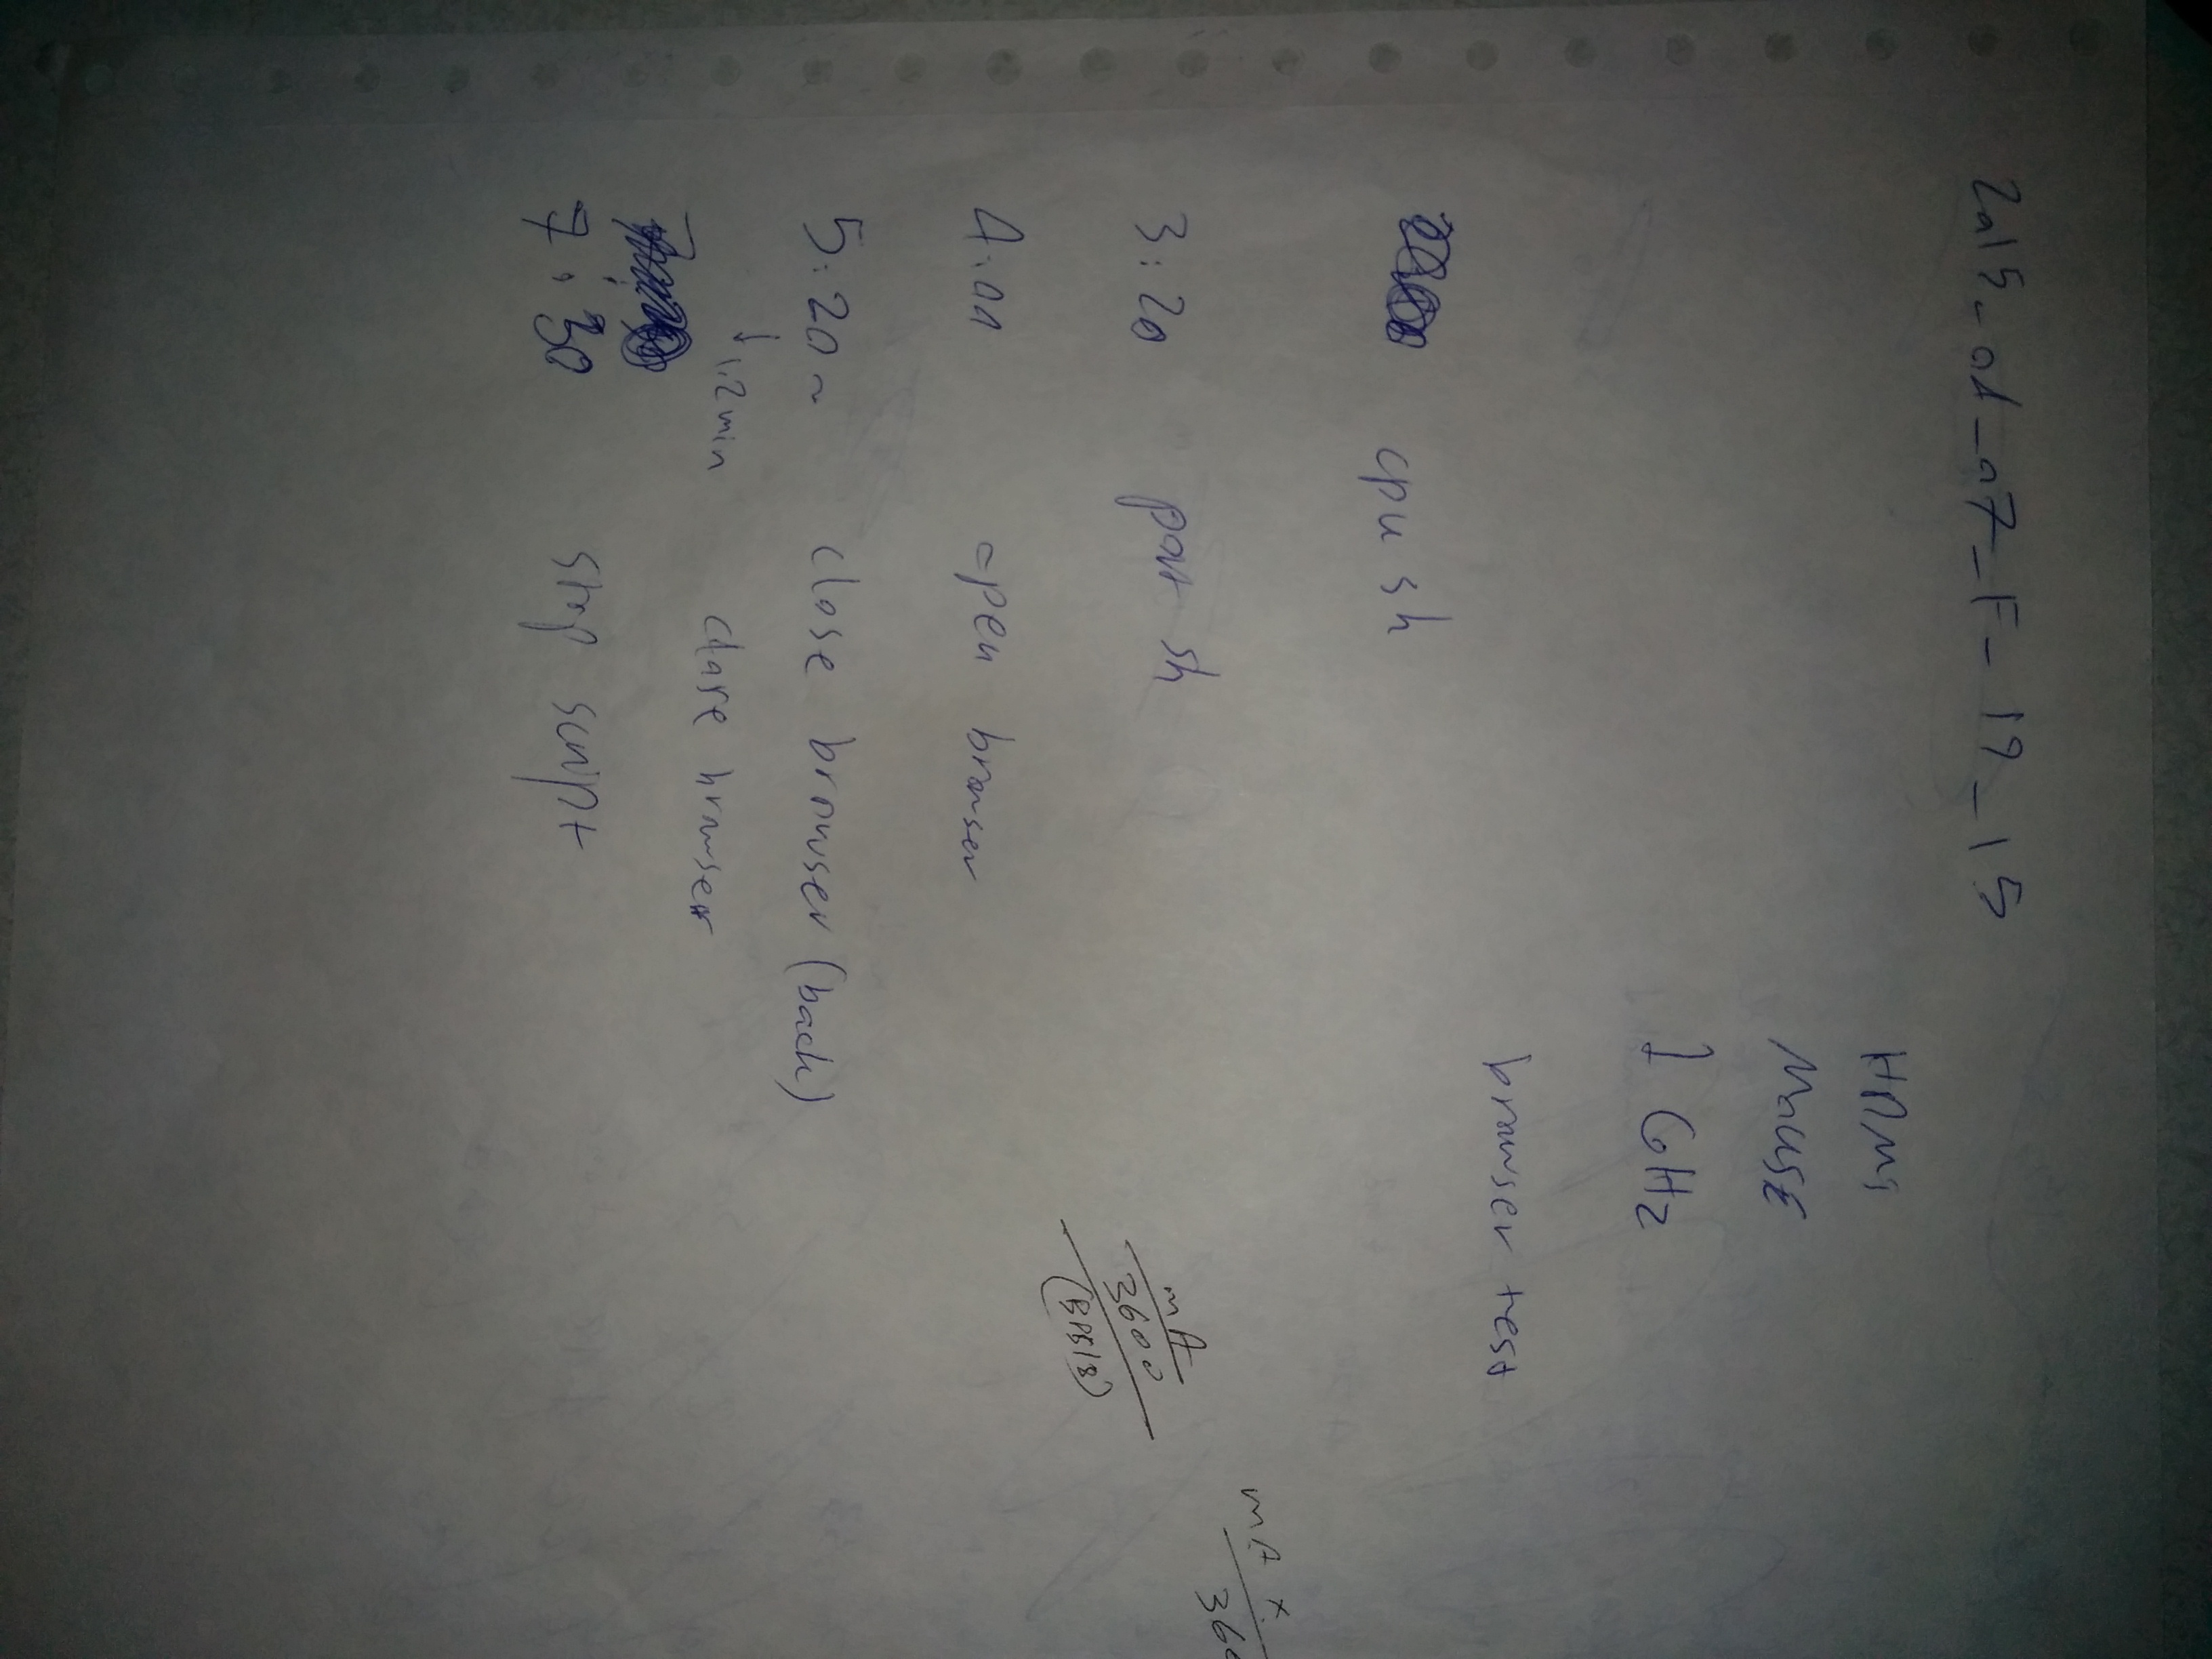 2015_01_07_F_19_15
HDMI
MOUSE
1 GHz
browser test
cpu sh
3:20 pow sh
4:00 open browser
5:20~ close browser (back)
↓1,2min close browser
7:30 stop script
mA
3600
mA x
360